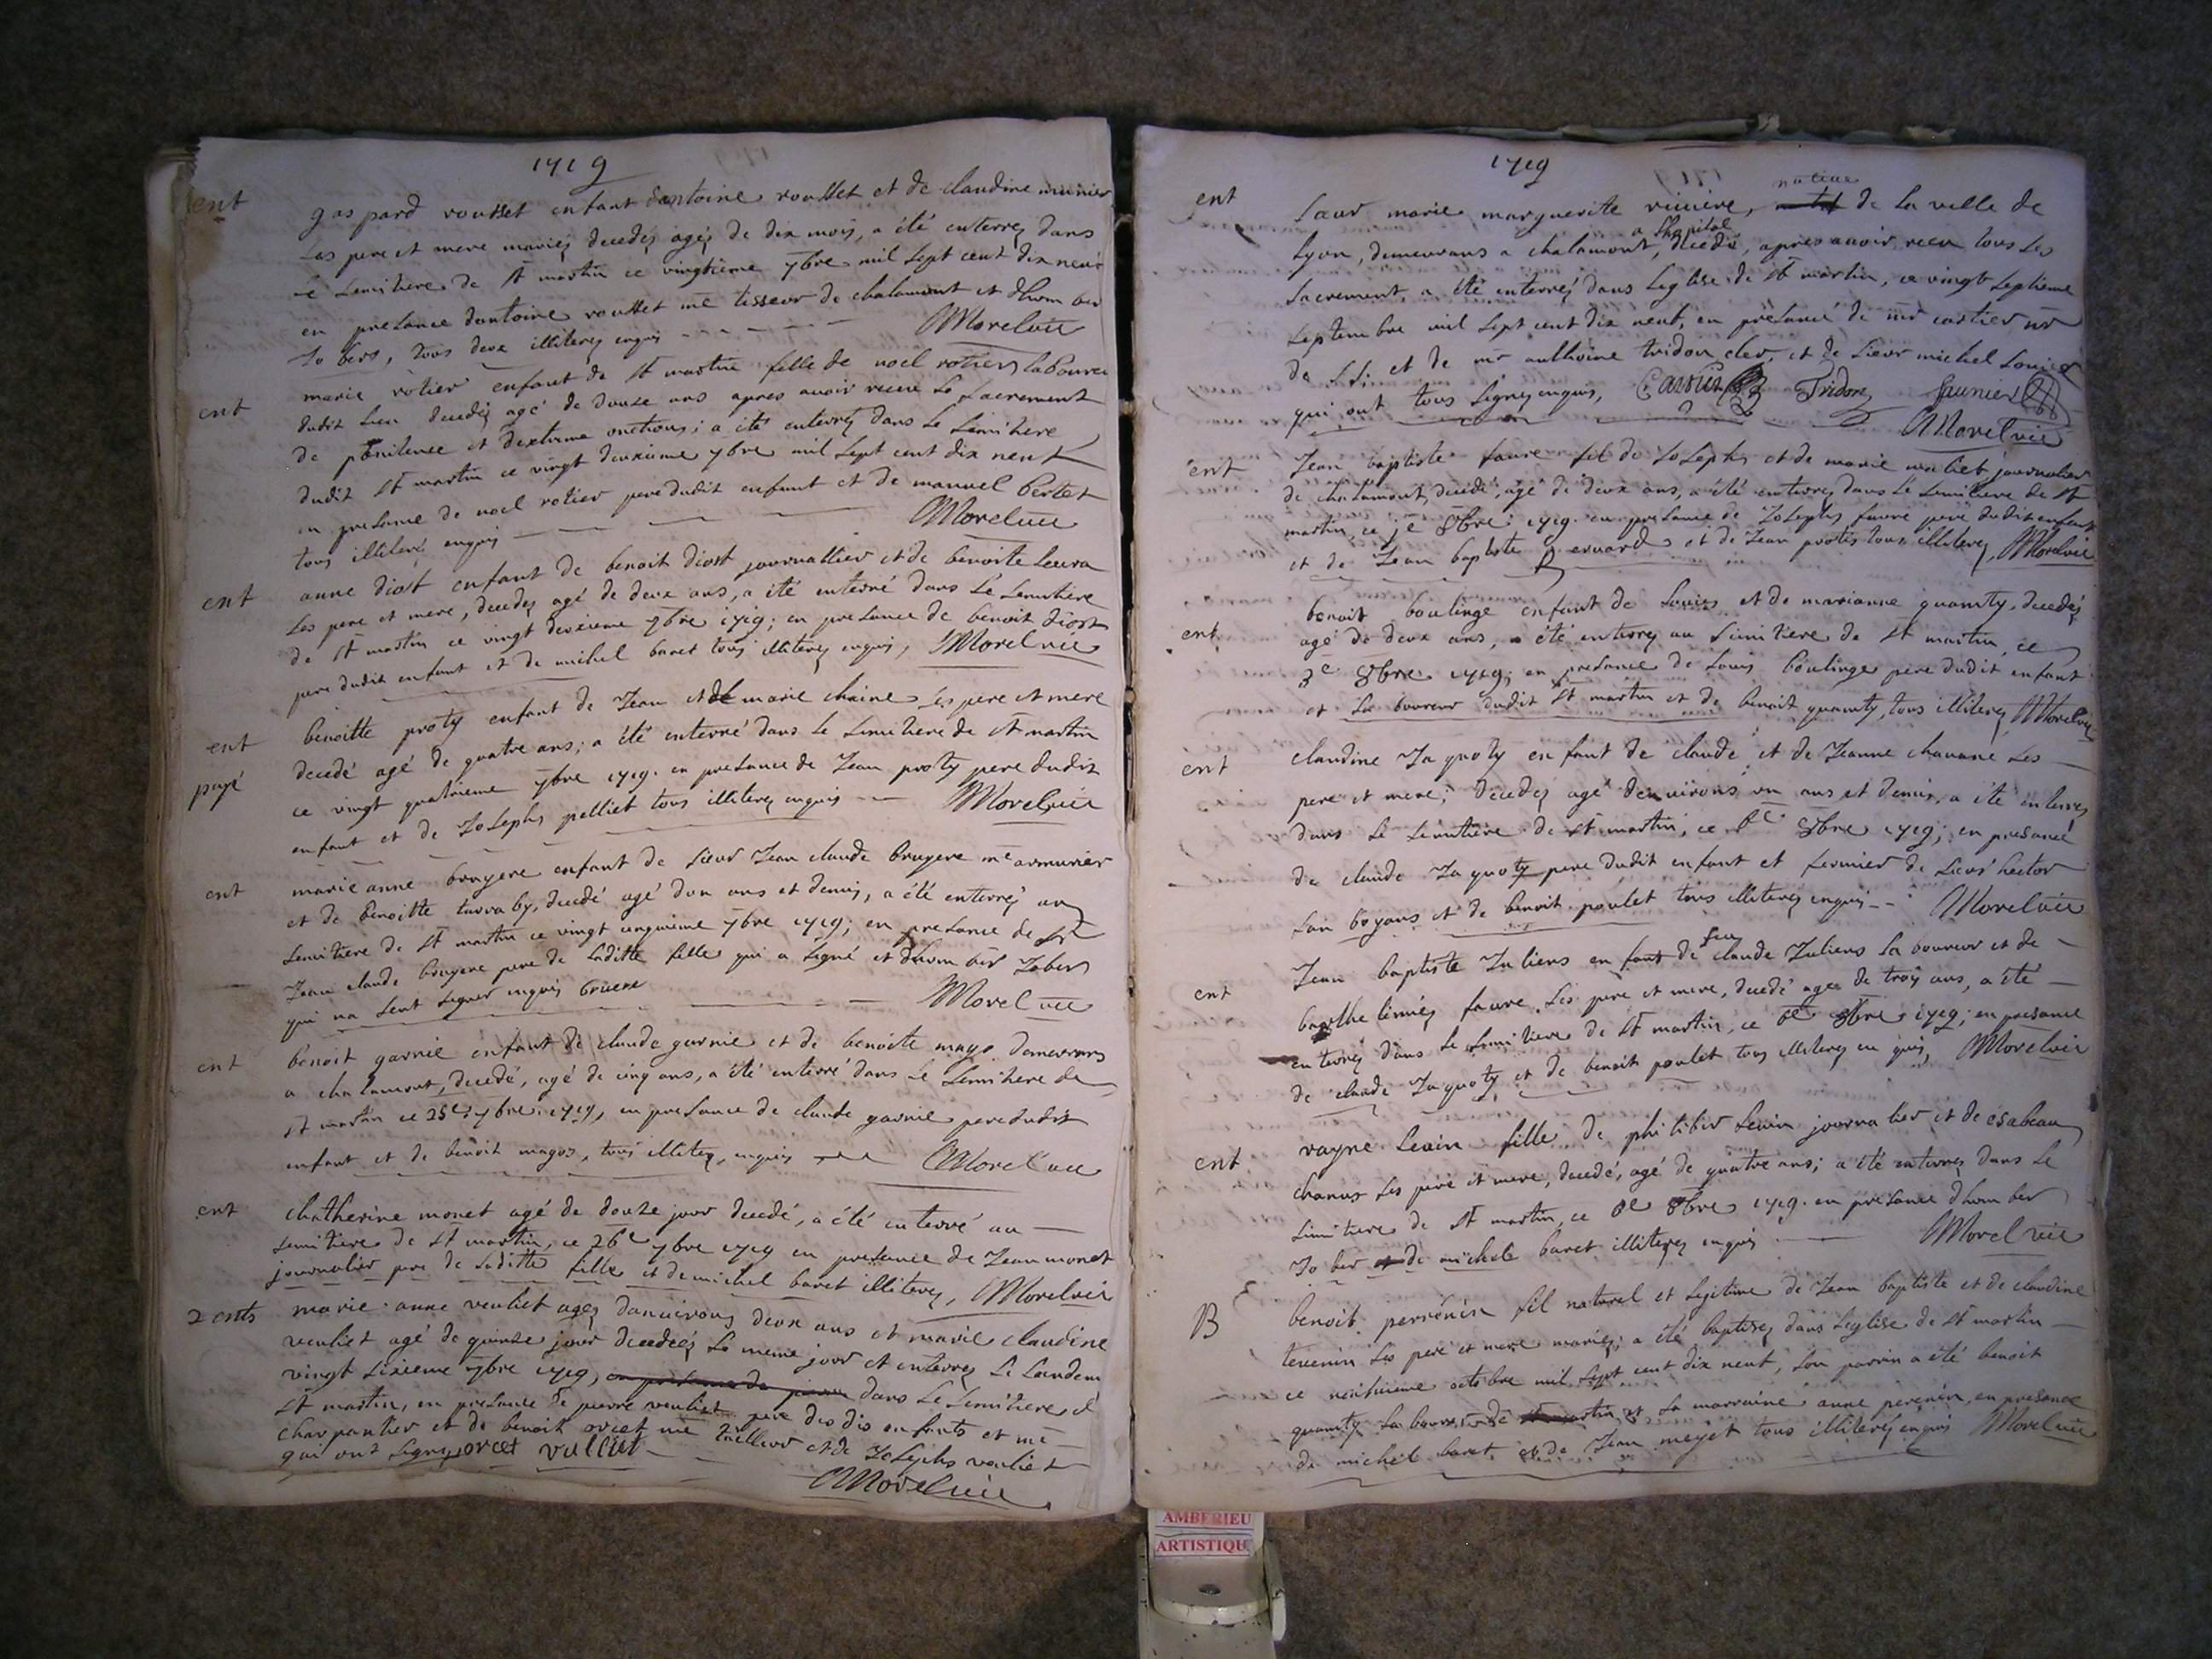 1719
ent
gaspard rousset enfant dantoine rousset et de claudine munier
ses pere et mere mariés decedés agés de dix mois, a été enterrez dans
le semitiere de st martin ce vingtieme 7bre mil sept cent dix neuf
en presance dantoine rousset me tisseur de chalamont et dhumber
Jobers, tous deux illiterez enquis Morel vic
ent
marie rotier enfant de st martin fille de noel rotier laboureur
dudit lieu decedéz agé de douze ans apres avoir receu le sacrement
de penitence et dextreme onctions; a été enterréz dans le semitiere
dudit st martin ce vingt deuxieme 7bre mil sept cent dix neuf
en presance de noel rotier pere dudit enfant et de manuel bertet
tous illiteré enquis Morel vic
ent
anne diost enfant de benoit diost journallier et de benoite
ses pere et mere, decedez agé de deux ans, a été enterré dans le semitiere
de st martin ce vingt deuxieme 7bre 1719; en presance de benoit diost
pere dudit enfant et de michel baret tous illiterez enquis, Morel vic
ent
payé
benoitte proty enfant de Jean et de marie chaine ses pere et mere
decedé agé de quatre ans; a été enterré dans le semitiere de st martin
ce vingt quatrieme 7bre 1719. en presance de Jean proty pere dudit
enfant et de Josephs pelliet tous illiterez enquis Morel vic
ent
marie anne bruyere enfant de sieur Jean claude bruyere me armurier
et de benoitte, decedé agé dun ans et demis, a été enterréz au
semitiere de st martin ce vingt cinquieme 7bre 1719; en presance de sr
Jean claude bruyere pere de laditte fille qui a signé et dhumber Jobers
qui na seut signer enquis bruere Morel vic
ent
benoit garnie enfant de claude garnie et de benoite mago demeurans
a chalamont, decedé, agé de cinq ans, a été enterré dans le semitiere de
st martin ce 25e 7bre 1719, en presance de claude garnie pere dudit
enfant et de benoit magos, tous illiterz, enquis Morel vic
ent
chatherine monet agé de douze jour decedé, a été enterré au
semitiere de st martin, ce 26e 7bre 1719 en presance de Jean monet
journalier pere de laditte fille et de michel baret illiterez, Morel vic
2 ents
marie anne veuliet agéz danvirons deux ans et marie claudine
veuliet agé de quinze jour decedeéz le meme jour et enterrez le landem
vingt sixieme 7bre 1719, dans le semitiere d
st martin, en presance de pierre veuliet pere des dis enfants et me
charpantier et de benoit orcet me tailleur et de Josephs veuliet
qui ont signez orcet vulliet
Morel vic
1719
ent
saur marie marguerite riviere, native de la ville de
lyon, demeurans a chalamont, a lhopital decedé, apres avoir receu tous les
sacrement, a été enterréz dans leglise de st martin, ce vingt septieme
septembre mil sept cent dix neuf, en presance de mr cartier
de et de mr anthoine tridon cler, et de sieur michel
qui ont tous signez enquis, Cartier Tridon saunier
Morel vic
ent
Jean baptiste faure fil de Josephs et de marie journalier
de chalamont, decedé, agé de deux ans, a été enterrez dans le semitiere de st
martin, ce 8bre 1719. en presance de Josephs faure pere dudit enfant
et de Jean baptiste et de Jean protis tous illiterez, Morel vic
ent
benoit boulinge enfant de Louis et de marianne quamty, decedéz
agé de deux ans, a été enterrez au simitiere de st martin, ce
3e 8bre 1719; en presance de Louis boulinge pere dudit enfant
et laboureur dudit st martin et de benoit quamty, tous illiterez Morel vic
ent
claudine Jaquoty enfant de claude et de Jeanne chavane ses
pere et mere; decedéz agé denvirons un ans et demis, a été enterrez
dans le semitiere de st martin, ce 8bre 1719; en presance
de claude Jaquoty pere dudit enfant et fermier de sieur hector
et de benoit poulet tous illiterez enquis Morel vic
ent
Jean baptiste Juliens enfant de feu claude Juliens laboureur et de
barthelimiez faure ses pere et mere, decedé agez de trois ans, a été
enterréz dans le semitiere de st martin, ce 8bre 1719; en presance
de claude Jaquoty et de benoit poulet tous illiterez enquis, Morel vic
ent
rayne levin fille de philibir levin journalier et de esabeau
chanus ses pere et mere, decedé, agé de quatre ans; a été enterrez dans le
simitiere de st martin, ce 8bre 1719. en presance dhumber
Jober et de michele baret illiterez enquis Morel vic
B
benoit pervenin fil naturel et legitime de Jean baptiste et de claudine
tevenin ses pere et mere mariez; a été baptisez dans leglise de st martin
ce octobre mil sept cent dix neuf, son parrin a été benoit
quamty laboureur de st martin, et sa marraine anne pervenin, en presance
de michel baret et de Jean meyet tous illiteréz enquis Morel vic
AMBERIEU
ARTISTIQU